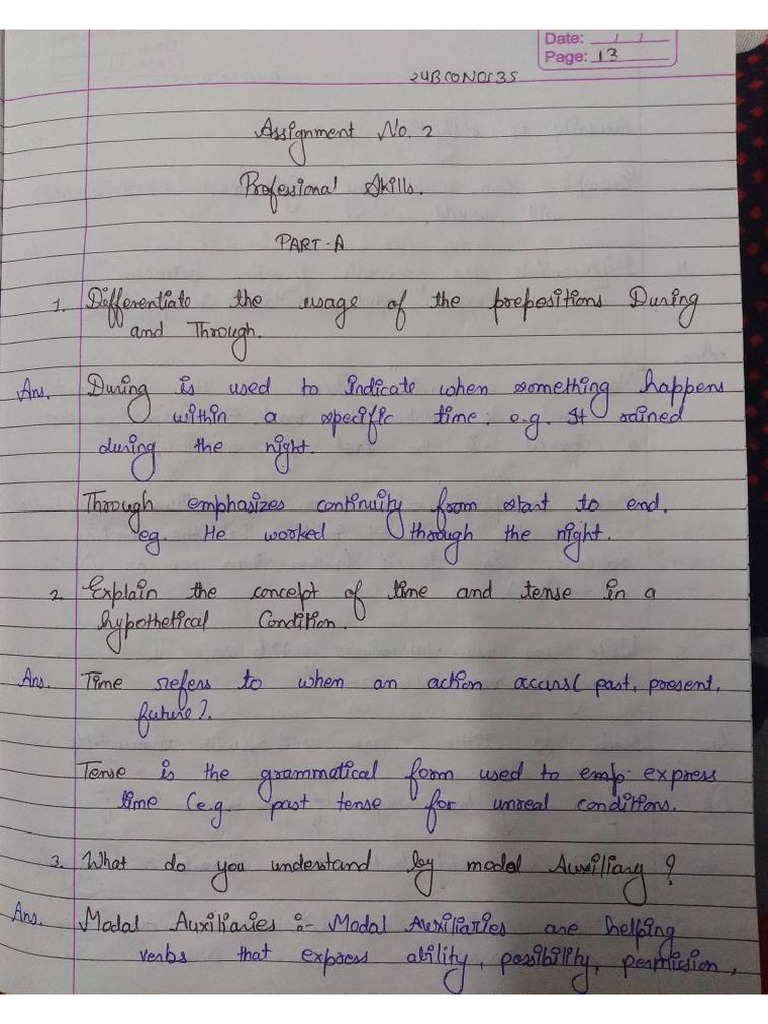 Date: / /
Page: 13
24BCON0135
Assignment No. 2
Professional Skills.
PART-A
1. Differentiate the usage of the prepositions During
and Through.
Ans. During is used to indicate when something happens
within a specific time. e.g. It rained
during the night.
Through emphasizes continuity from start to end.
eg. He worked through the night.
2. Explain the concept of time and tense in a
hypothetical Condition.
Ans. Time refers to when an action accurs( past, present,
future).
Tense is the grammatical form used to emp. express
time (e.g. past tense for unreal conditions.
3. What do you understand by modal Auxiliary?
Ans. Modal Auxiliaries :- Modal Auxiliaries are helping
verbs that express ability, possibility, permission,